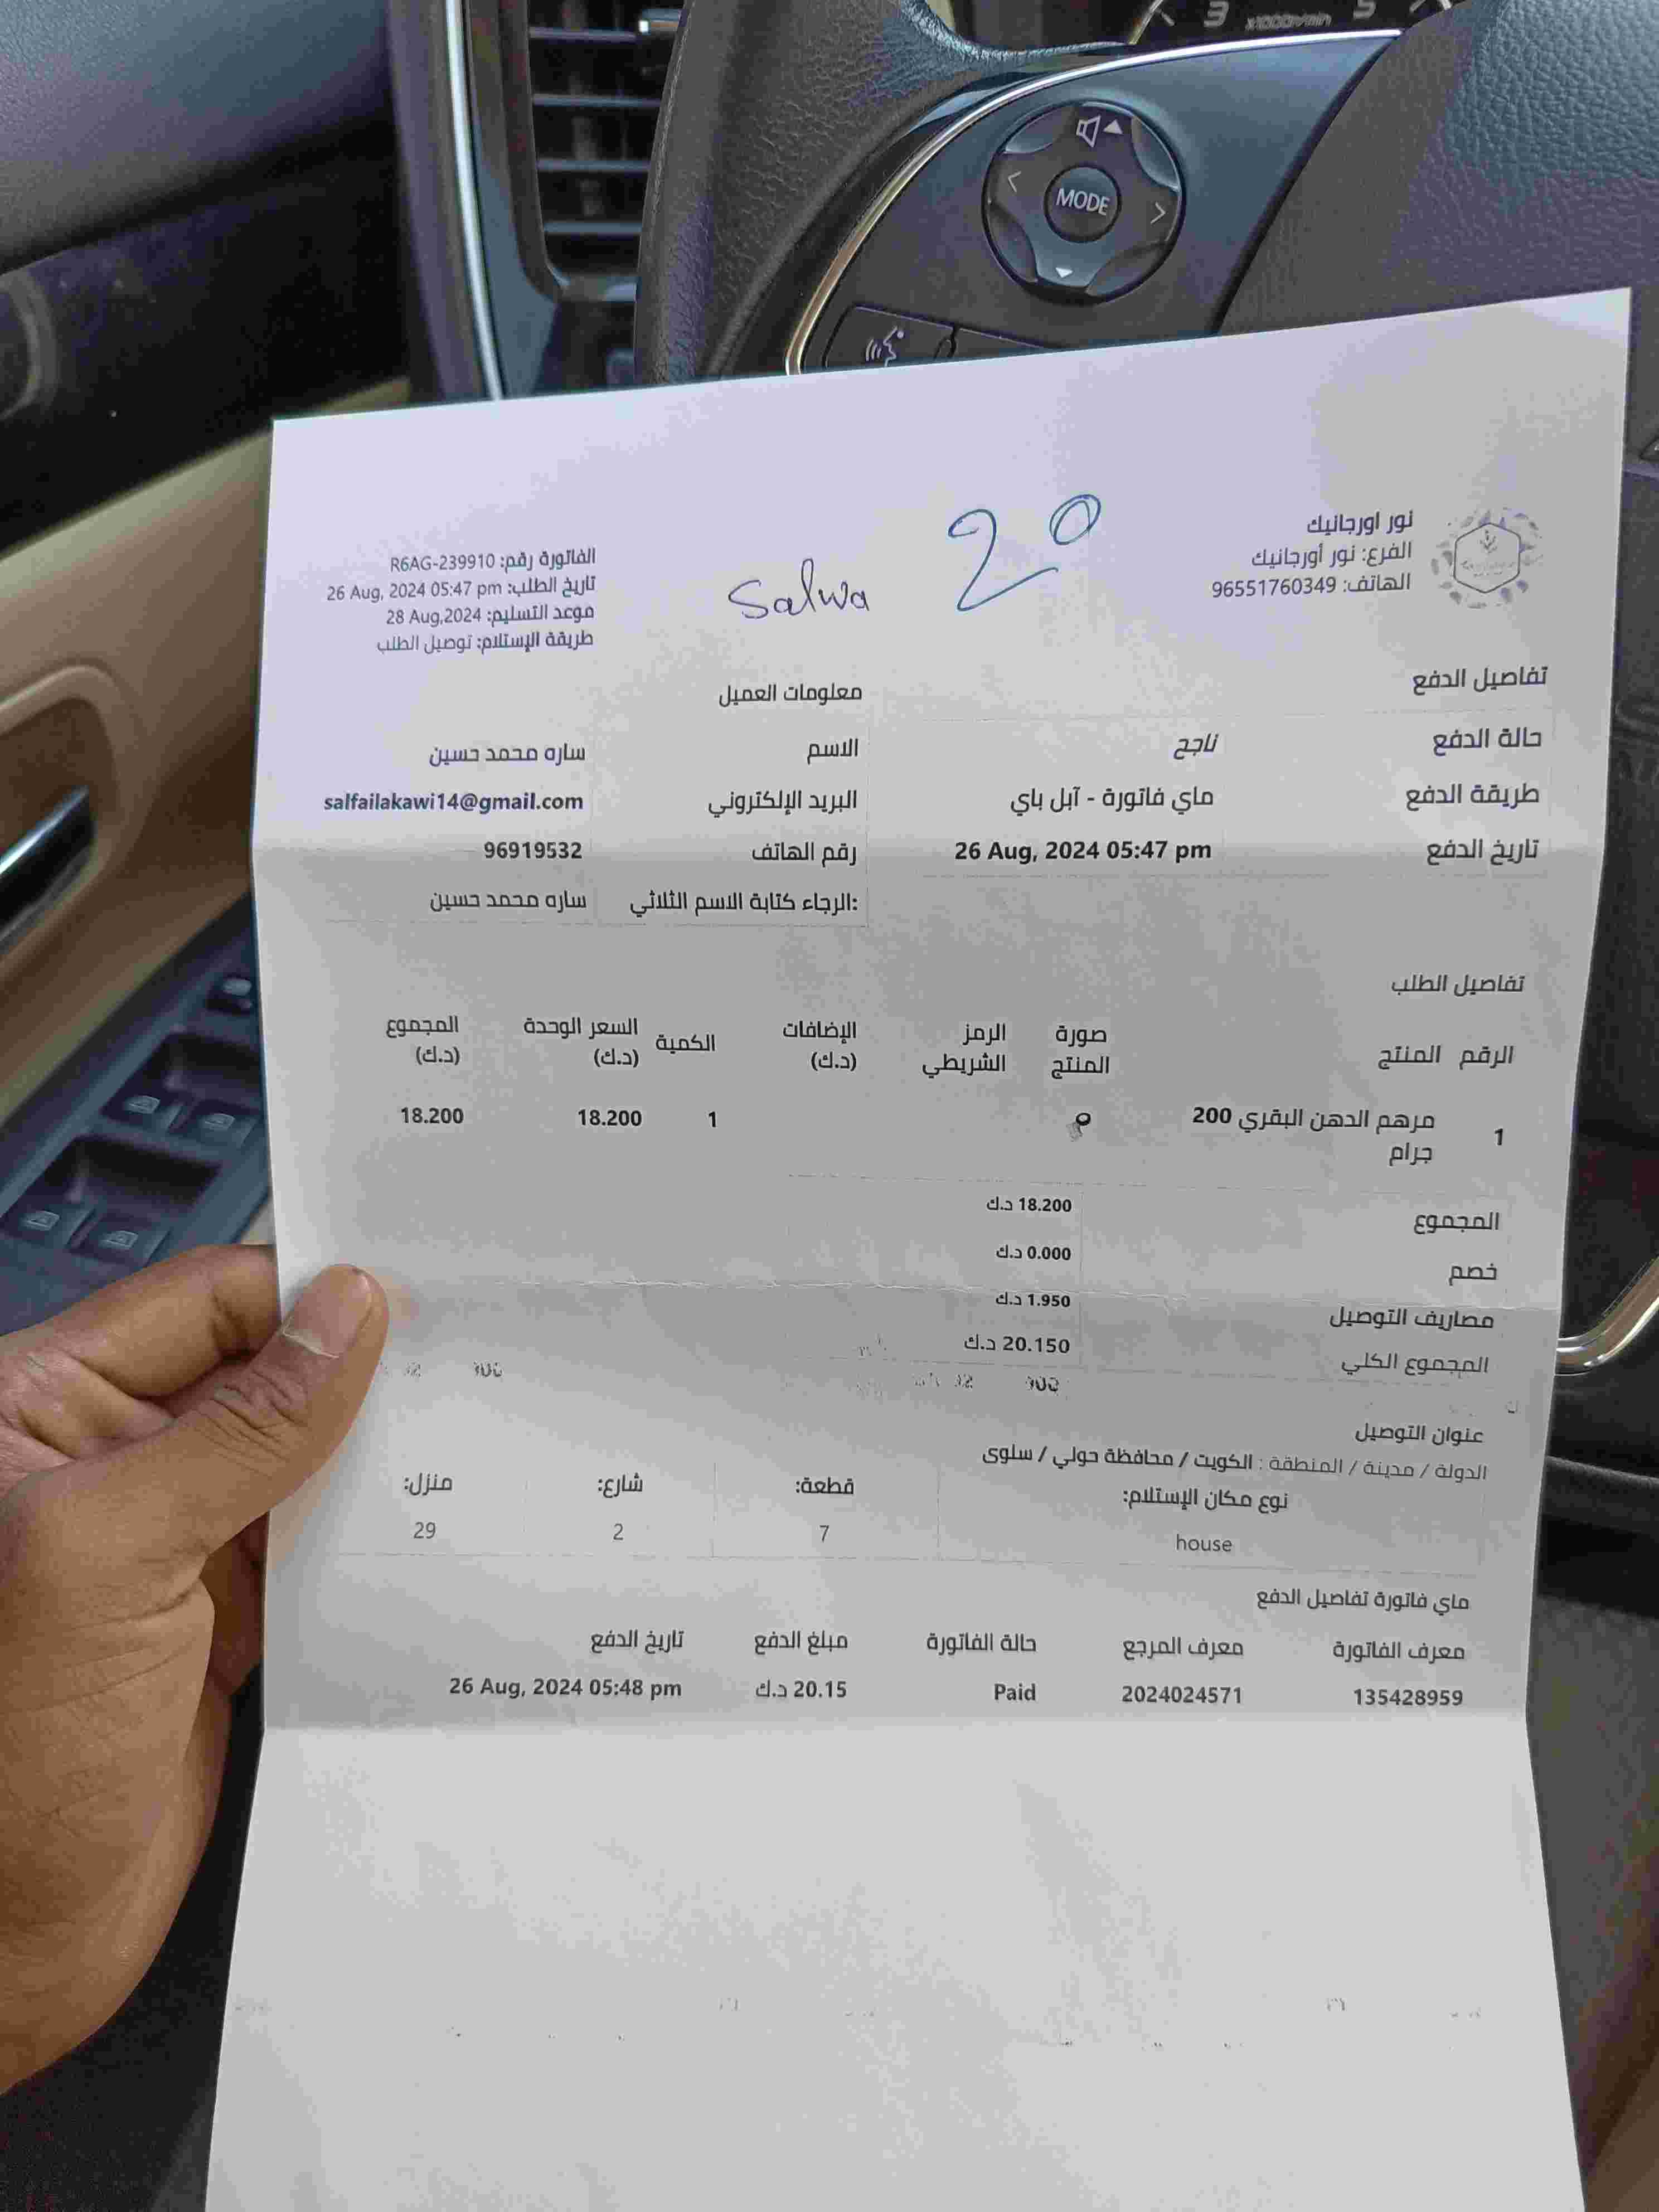 3 x1000r/min 5
MODE
نور اورجانيك
الفرع: نور أورجانيك
الهاتف: 96551760349
20
Salwa
الفاتورة رقم: R6AG-239910
تاريخ الطلب: 26 Aug, 2024 05:47 pm
موعد التسليم: 28 Aug,2024
طريقة الإستلام: توصيل الطلب
تفاصيل الدفع
حالة الدفع ناجح
طريقة الدفع ماي فاتورة - آبل باي
تاريخ الدفع 26 Aug, 2024 05:47 pm
معلومات العميل
الاسم ساره محمد حسين
البريد الإلكتروني salfailakawi14@gmail.com
رقم الهاتف 96919532
:الرجاء كتابة الاسم الثلاثي ساره محمد حسين
تفاصيل الطلب
الرقم المنتج صورة المنتج الرمز الشريطي الإضافات (د.ك) الكمية السعر الوحدة (د.ك) المجموع (د.ك)
1 مرهم الدهن البقري 200 جرام 1 18.200 18.200
المجموع 18.200 د.ك
خصم 0.000 د.ك
مصاريف التوصيل 1.950 د.ك
المجموع الكلي 20.150 د.ك
عنوان التوصيل
الدولة / مدينة / المنطقة : الكويت / محافظة حولي / سلوى
نوع مكان الإستلام: قطعة: شارع: منزل:
house 7 2 29
ماي فاتورة تفاصيل الدفع
معرف الفاتورة معرف المرجع حالة الفاتورة مبلغ الدفع تاريخ الدفع
135428959 2024024571 Paid 20.15 د.ك 26 Aug, 2024 05:48 pm